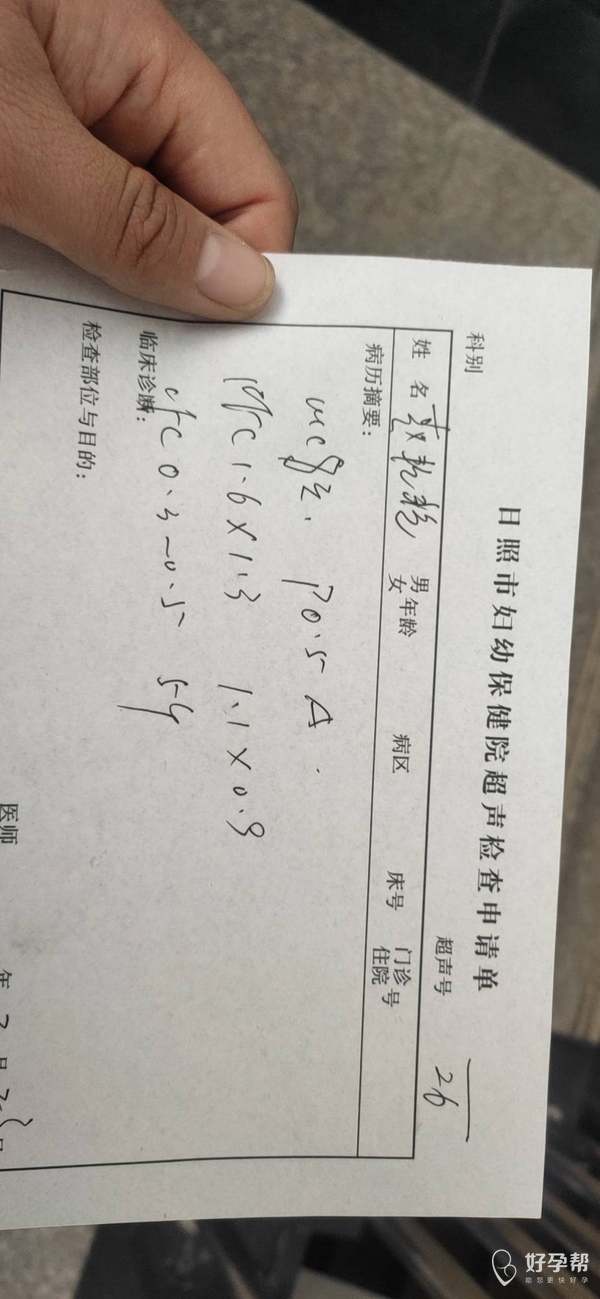 日照市妇幼保健院超声检查申请单
科别 超声号 26
姓名 男女 年龄 病区 床号 门诊住院 号
病历摘要：
P0.5 A.
1.6×1.3 1.1×0.9
临床诊断：
0.3~0.5 5个
检查部位与目的：
医师 年 7月
好孕帮
助您更快好孕